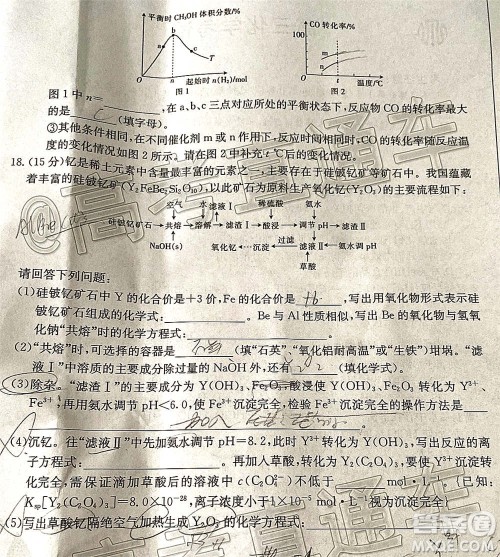 平衡时 CH₃OH 体积分数/%
b
a
c
T
O
n
起始时 n(H₂)/mol
图 1
CO 转化率/%
100
m
n
O
t
温度/℃
图 2
图 1 中 n=________,在 a、b、c 三点对应所处的平衡状态下,反应物 CO 的转化率最大
的是 c (填字母)。
③其他条件相同,在不同催化剂 m 或 n 作用下,反应时间相同时,CO 的转化率随反应温
度的变化情况如图 2 所示。请在图 2 中补充 t ℃后的变化情况。
18.(15 分)钇是稀土元素中含量最丰富的元素之一,主要存在于硅铍钇矿等矿石中。我国蕴藏
着丰富的硅铍钇矿(Y₂FeBe₂Si₂O₁₀),以此矿石为原料生产氧化钇(Y₂O₃)的主要流程如下:
空气 水 滤液Ⅰ 稀硫酸 氨水
硅铍钇矿石→共熔→溶解→滤渣Ⅰ→酸浸→调节 pH→滤渣Ⅱ
NaOH(s) 氧化钇←沉淀←过滤 滤液Ⅱ←氨水调 pH
草酸
请回答下列问题:
(1)硅铍钇矿石中 Y 的化合价是+3 价,Fe 的化合价是 +6 ,写出用氧化物形式表示硅
铍钇矿石组成的化学式:________。Be 与 Al 性质相似,写出 Be 的氧化物与氢氧
化钠“共熔”时的化学方程式:________。
(2)“共熔”时,可选择的容器是________(填“石英”、“氧化铝耐高温”或“生铁”)坩埚。“滤
液Ⅰ”中溶质的主要成分除过量的 NaOH 外,还有________(填化学式)。
(3)除杂。“滤渣Ⅰ”的主要成分为 Y(OH)₃、Fe₂O₃,酸浸使 Y(OH)₃、Fe₂O₃ 转化为 Y³⁺、
Fe³⁺,再用氨水调节 pH<6.0,使 Fe³⁺沉淀完全,检验 Fe³⁺沉淀完全的操作方法是
加入
(4)沉钇。往“滤液Ⅱ”中先加氨水调节 pH=8.2,此时 Y³⁺转化为 Y(OH)₃,写出反应的离
子方程式:________。再加入草酸,转化为 Y₂(C₂O₄)₃ 沉淀,要使沉淀转
化完全,需保证滴加草酸后的溶液中 c(C₂O₄²⁻)不低于________mol·L⁻¹。(已知:
Kₛₚ[Y₂(C₂O₄)₃]=8.0×10⁻²⁸,离子浓度小于 1×10⁻⁵ mol·L⁻¹ 视为沉淀完全)
(5)写出草酸钇隔绝空气加热生成 Y₂O₃ 的化学方程式:
@高考直通车
答案圈